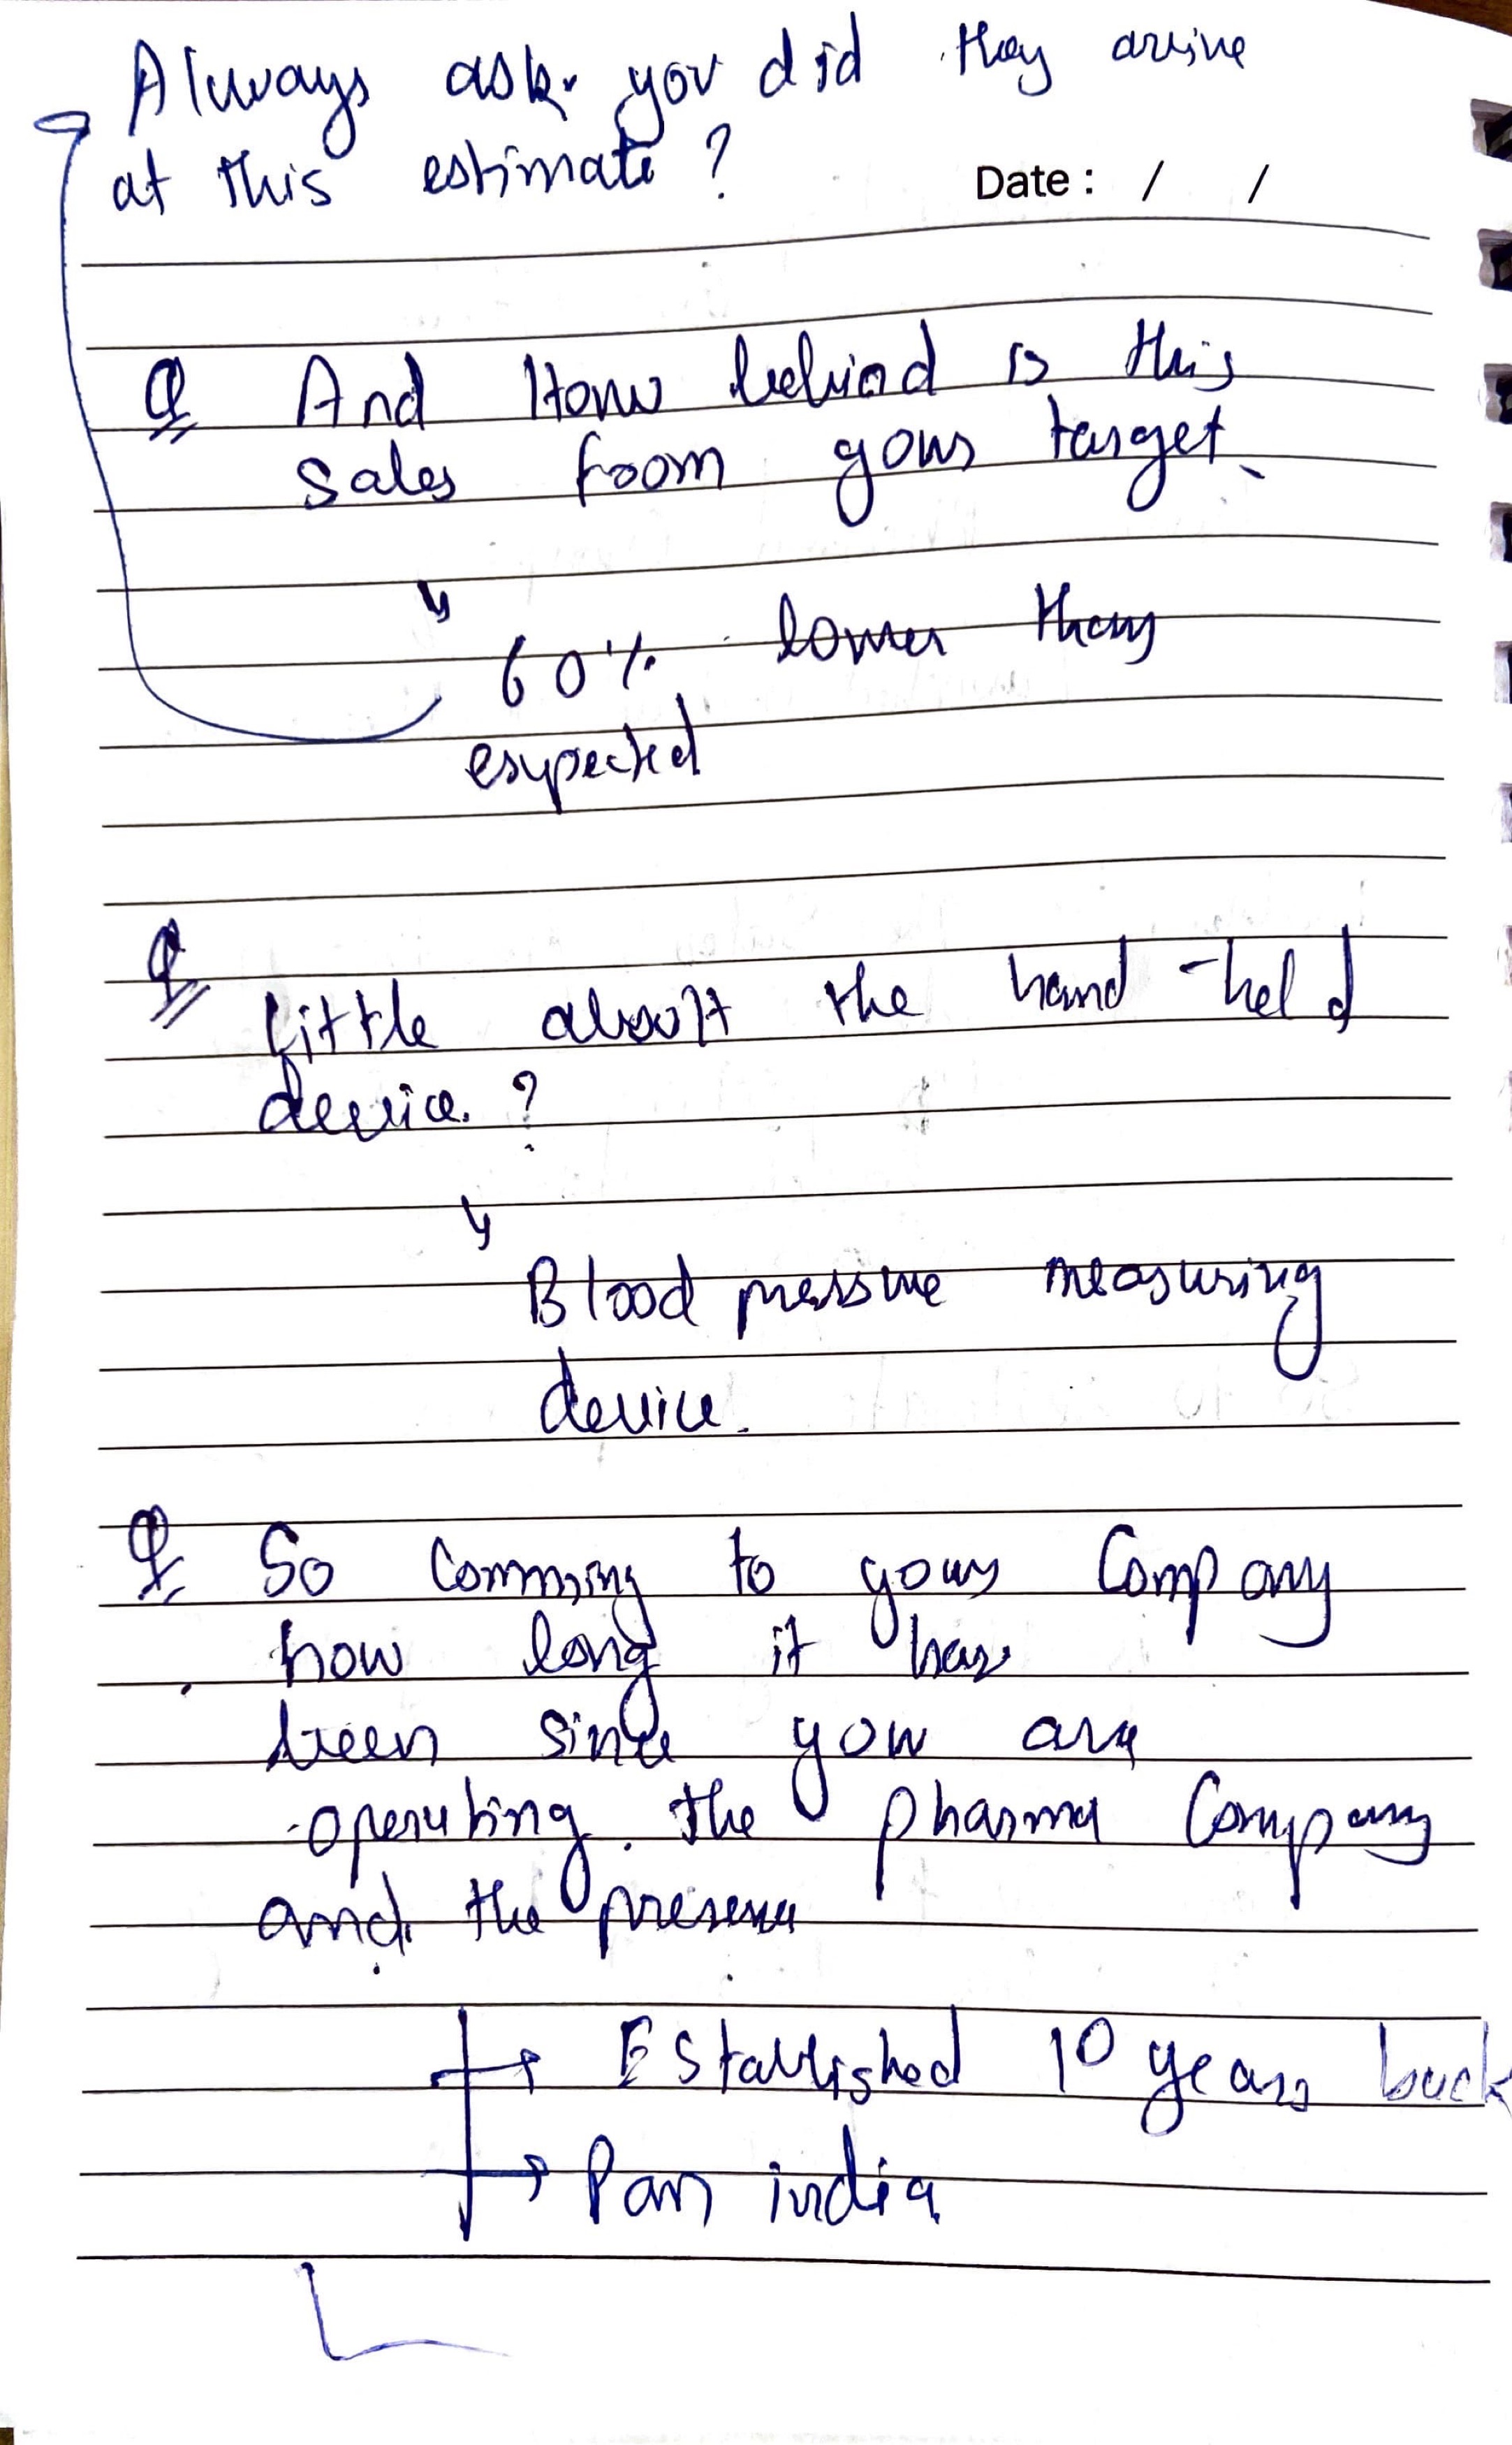 Always ask you did they arrive
at this estimate ?
Date : / /
Q And How behind is this
sales from your target
60% lower than
expected
Q
Little about the hand-held
device. ?
Blood pressure measuring
device.
Q So Comming to your Company
how long it has
been since you are
operating the pharma Company
and the presence
Established 10 years back
Pan india